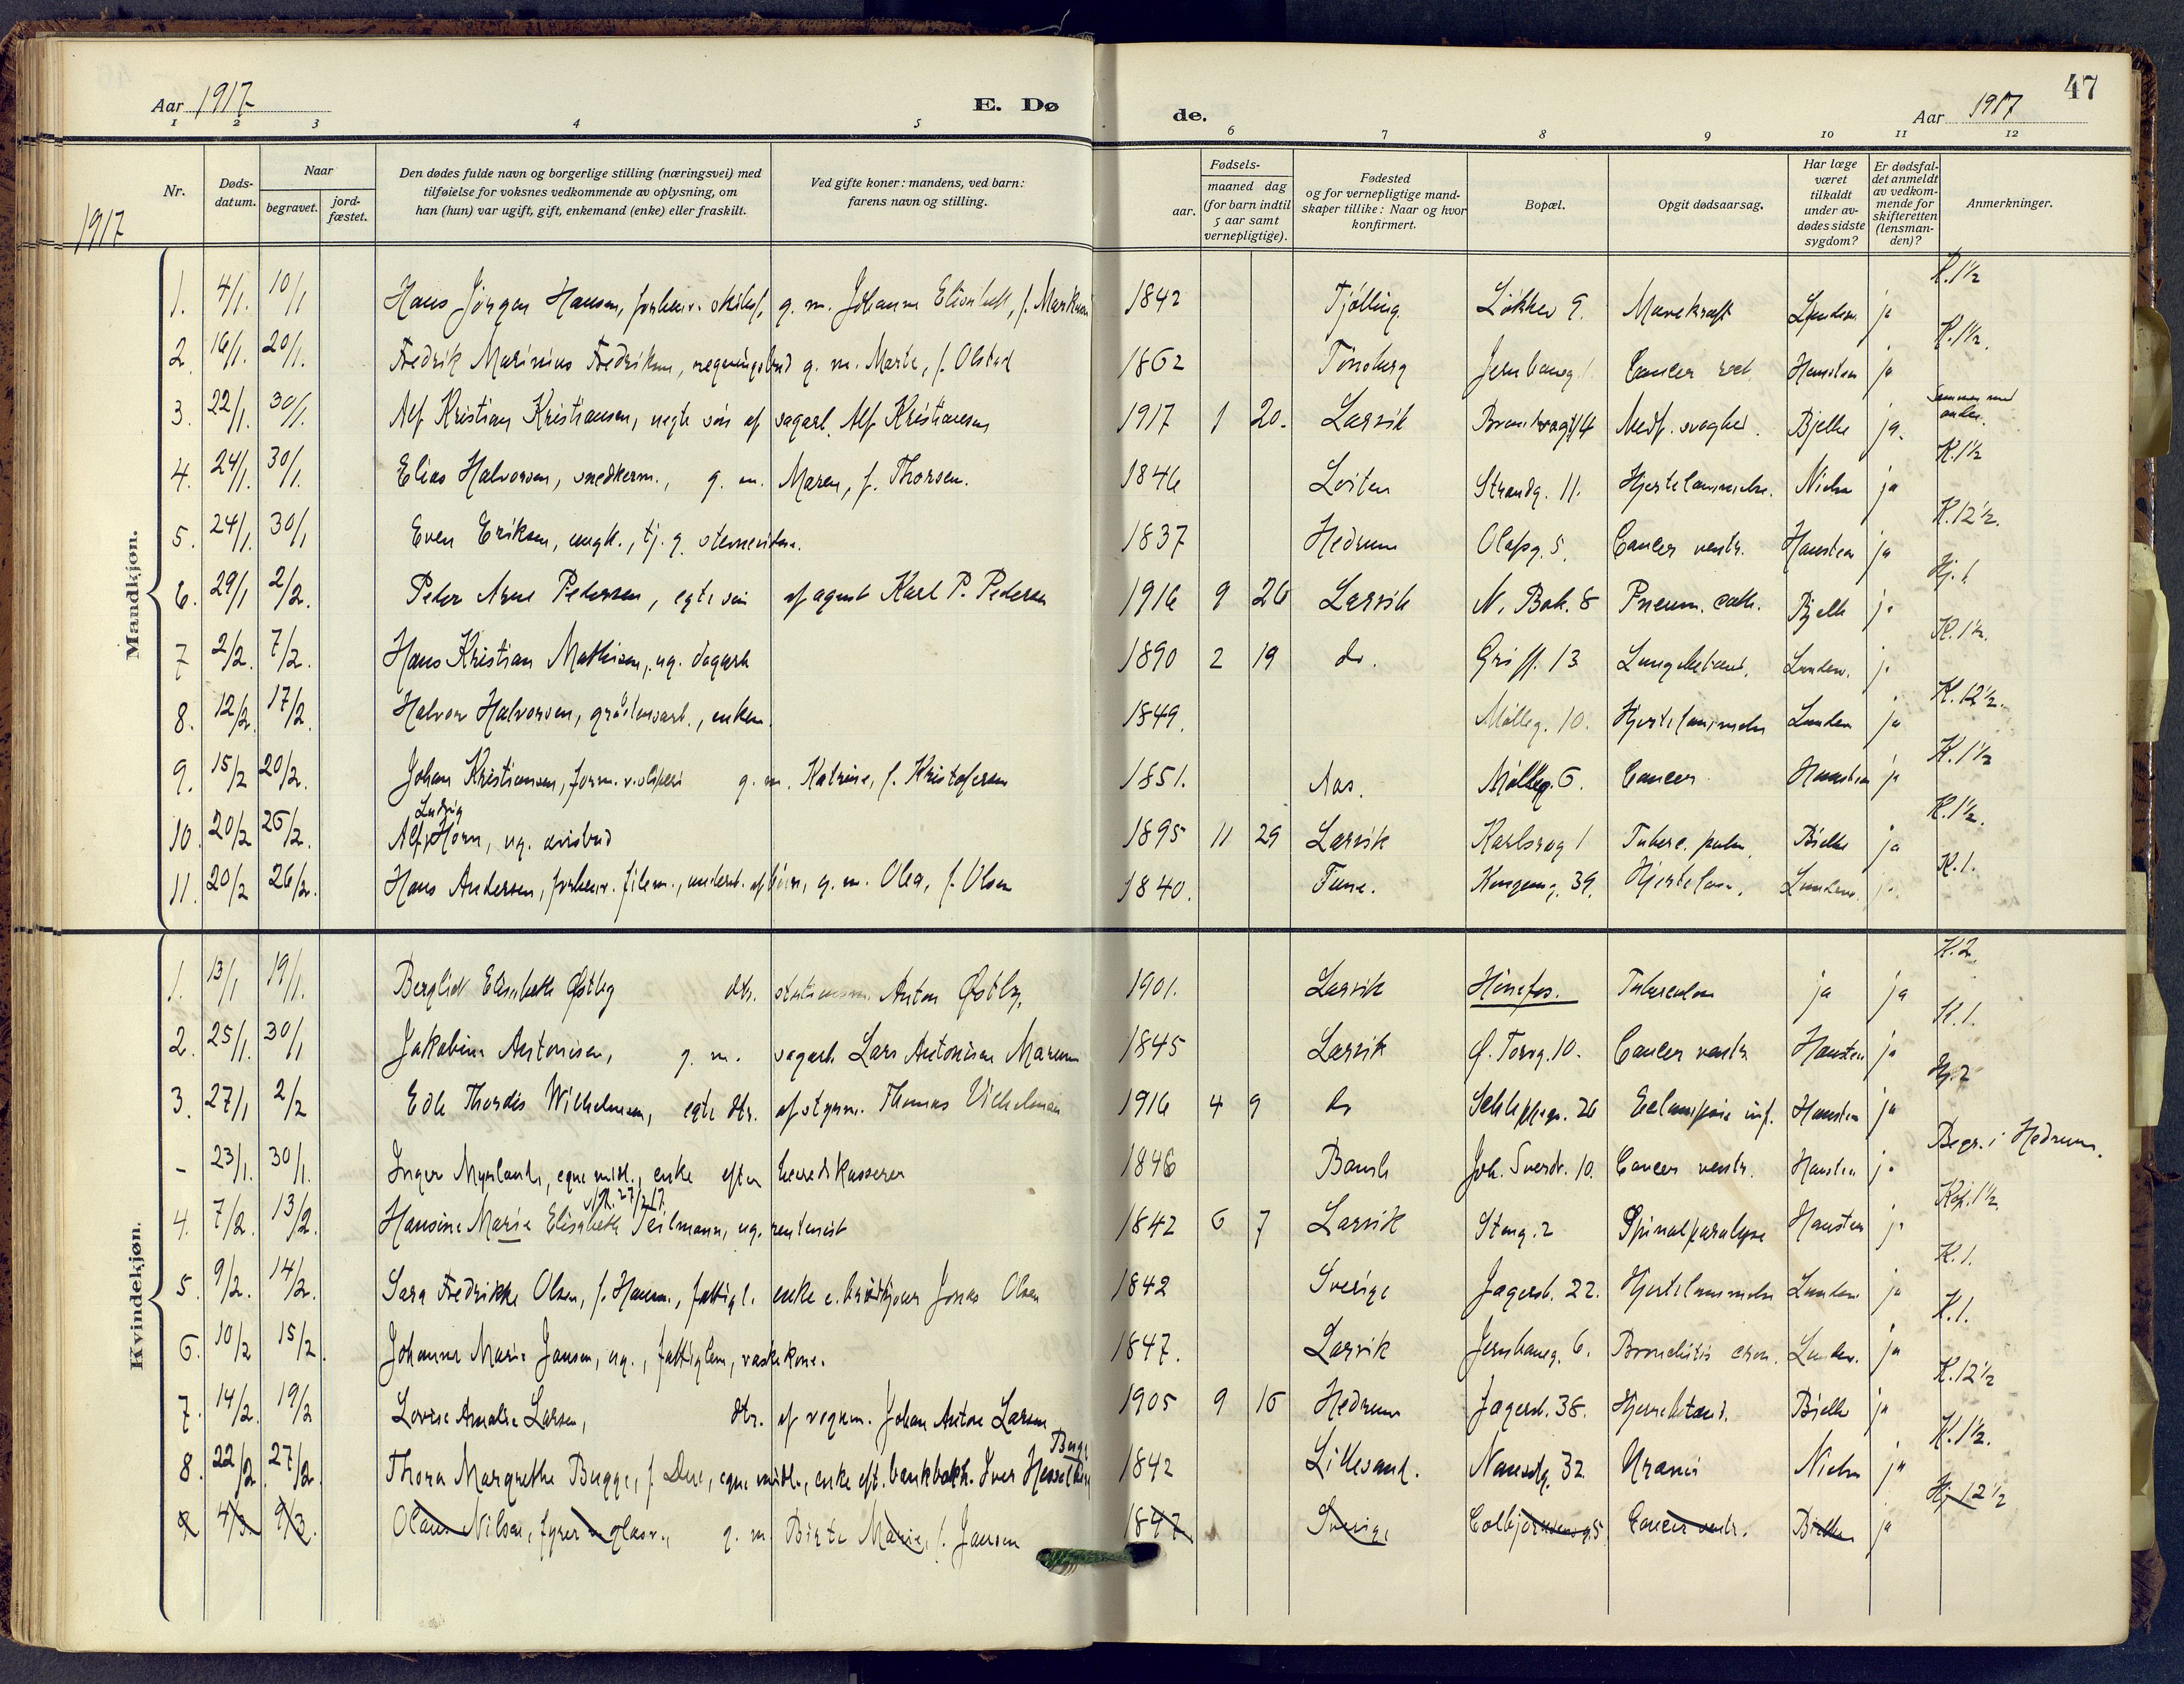 Aar 1917
E. Dø
de.
Aar 1917
47
1 2 3 4 5 6 7 8 9 10 11 12
Nr.
Døds-
datum.
Naar
begravet.
jord-
fæstet.
Den dødes fulde navn og borgerlige stilling (næringsvei) med
tilføielse for voksnes vedkommende av oplysning, om
han (hun) var ugift, gift, enkemand (enke) eller fraskilt.
Ved gifte koner: mandens, ved barn:
farens navn og stilling.
Fødsels-
aar.
maaned dag
(for barn indtil
5 aar samt
vernepligtige).
Fødested
og for vernepligtige mand-
skaper tillike: Naar og hvor
konfirmert.
Bopæl.
Opgit dødsaarsag.
Har læge
været
tilkaldt
under av-
dødes sidste
sygdom?
Er dødsfal-
det anmeldt
av vedkom-
mende for
skifteretten
(lensman-
den)?
Anmerkninger.
1917
Mandkjøn.
1. 4/1. 10/1 Hans Jørgen Hansen, g. m. Johanne 1842 Tjølling Løkkev 9. ja K. 1½
2. 16/1. 20/1. Fedrik Marinius Fedriksen, g. m. Marte, f. Olstad 1862 Tønsberg Jernbaneg 1 Cancer Hansteen ja K. 1½.
3. 22/1. 30/1. Alf Kristian Kristiansen, uegte søn af sagarb. Alf Kristiansen 1917 1 20. Larvik Medf. svaghed. Bjelke ja. Sammen med anden.
4. 24/1. 30/1. Elias Halvorsen, snedkerm., g. m. Maren, f. Thorsen. 1846 Løiten Strandg. 11. Hjertelammelse. Nielsen ja K. 1½
5. 24/1. 30/1 Even Eriksen, ungk., 1837 Hedrum Olafsg. 5. Cancer ventr. Hansteen ja K. 12½.
6. 29/1 2/2. Peder Arne Pedersen, egte søn af agent Karl P. Pedersen 1916 9 26 Larvik N. Bøk. 8 Pneum. cath. Bjelke ja Hj. 1
7 2/2. 7/2. Hans Kristian Mathisen, ug. dagarb 1890 2 19 do. Griff. 13 Lungebetænd. ja K. 1½.
8. 12/2. 17/2. Halvor Halvorsen, gråstensarb., enkem. 1849. Mølleg. 10. Hjertelammelse ja K. 12½.
9. 15/2 20/2. Johan Kristiansen, g. m. Katrine, f. Kristofersen 1851. Aas. Mølleg. 6. Cancer Hansteen ja K. 1½
10. 20/2 26/2. Alf Ludvig Horn, ug. avisbud 1895 11 29 Larvik Karlsrog 1 Tuberc. pulm. Bjelke ja K. 1½.
11. 20/2 26/2. Hans Andersen, forhenv. filem., g. m. Olea, f. Olsen 1840. Tune. Kongeg. 39. Hjertelam. ja K. 1.
Kvindekjøn.
1. 13/1 19/1. Berglid Elisabeth Østby dtr. stationsm. Anton Østby. 1901. Larvik Hønefos. Tuberculose ja ja K. 2.
2. 25/1. 30/1 Jakobine Antonisen, g. m. sagarb. Lars Antonisen 1845 Larvik Ø. Torvg. 10. Cancer ventr. Hansteen ja K. 1.
3. 27/1 2/2 Edle Thordis Wilhelmsen, egte dtr. af styrm. Thomas Vilhelmsen 1916 4 9 do Schleppegr. 26 Eclampsie inf. Hansteen ja Hj. 2
- 23/1. 30/1. Inger Myrland, egne midl., enke efter herredskasserer 1846 Bamble Joh. Sverdr. 10. Cancer ventr. Hansteen ja Begr. i Hedrum.
4. 7/2. 13/2. Hansine Marie Elisabeth Teilmann, ug. rentenist 1842 6 7 Larvik Steng. 2 Spinalparalyse Hansteen ja 1½.
5. 9/2. 14/2. Sara Fredrikke Olsen, f. Hansen, fattigl. enke e. Jonas Olsen 1842 Sverige Jagersb. 22. Hjertelammelse ja K. 1.
6. 10/2 15/2. Johanne Marie Jansen, ug., fattiglem, vaskekone. 1847. Larvik Jernbaneg. 6. Bronchitis cron. ja K. 1.
7. 14/2. 19/2 Lovise Amalie Larsen, dtr. af vognm. Johan Anton Larsen 1905 9 16 Hedrum Jagersb. 38. Hjernebetænd. Bjelke ja K. 12½
8. 22/2 27/2. Thora Margrethe Bugge, f. Due, egne midler, enke eft. bankbokh. Iver Hesselberg Bugge 1842 Lillesand. Nansetg. 32 Uræmi Nielsen ja K. 1½.
9 4/3 9/3. Olaus Nilsen, g. m. Birte Marie, f. Jansen 1847. Sverige Colbjørnsensg. 5 Cancer ventr. Bjelke ja Hj. 12½